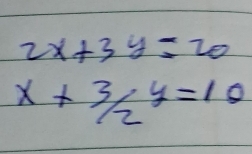 2x+3y=20
x + 3/2 y=10